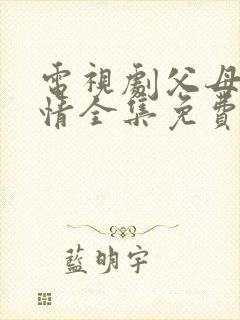 電視劇父母
情全集免費
藍明宇